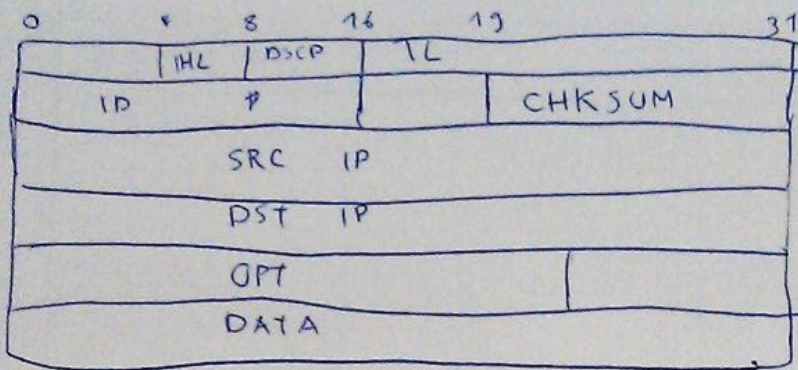 0 8 16 19 31
IHL DSCP TL
ID CHKSUM
SRC IP
DST IP
OPT
DATA